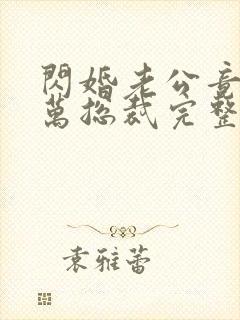 閃婚老公竟
萬總裁完整
袁雅蕾